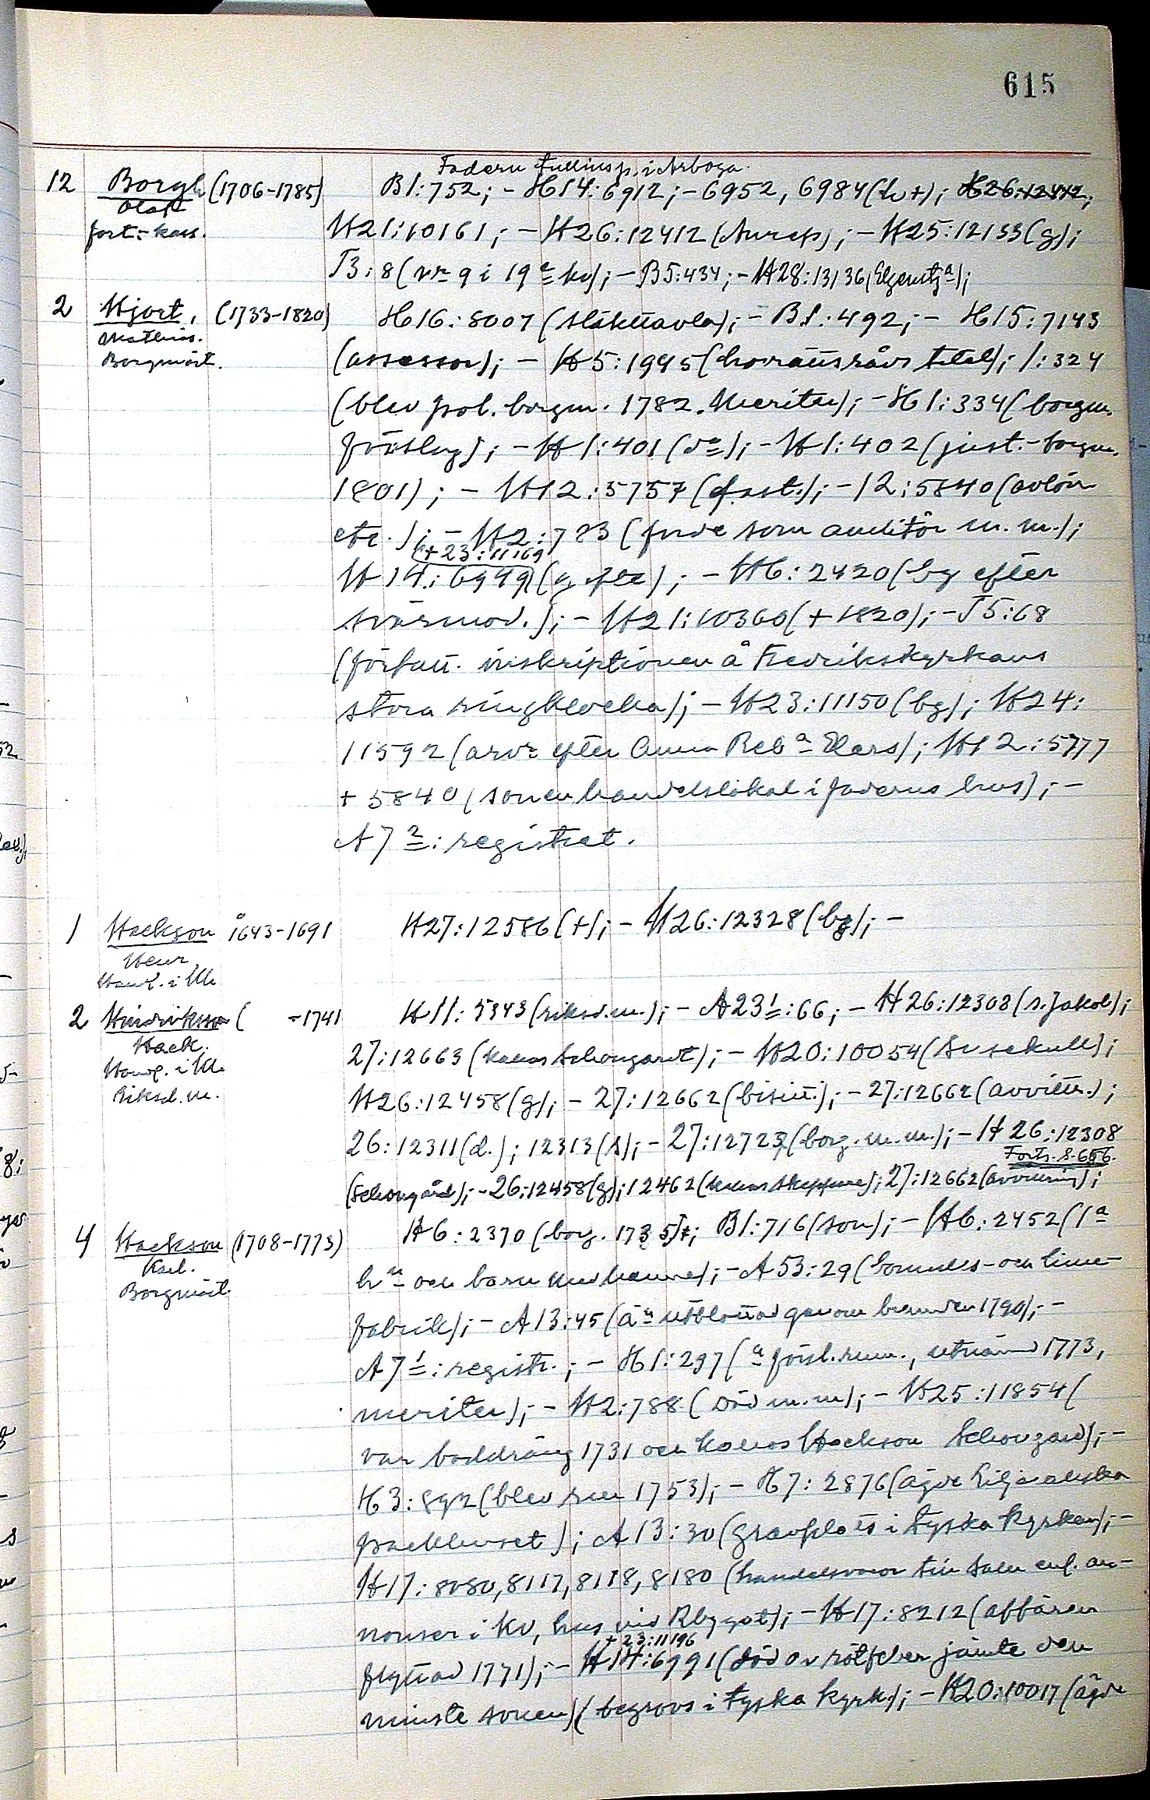 615
Fadern tullinsp. i Arboga.
12 Borgh (1706-1785) B1:752; - H14:6912; - 6952, 6984 (h +); H26:12412;
Olof
fort.-kass. H21:10161; - H26:12412 (Aurep); - H25:12133 (g);
J3:8 (nr 9 i 19e kv); - B5:434; - H28:13136 (Elgenstja);
2 Hjort, (1733-1820) H16:8007 (släkttavla); - B1:492; - H15:7143
Mathias.
Borgmäst. (assessor); - H5:1945 (hovrättsråds titel); 1:324
(blev pol. borgm. 1782. Meriter); - H1:334 (borgm.
förslag); - H1:401 (do); - H1:402 (just.-borgm.
1801); - H12:5757 (fast.); - 12:5840 (avlön
etc.); - H2:783 (förde som auditör m. m.);
+ 23:11169
H14:6949 (g. fte); - H6:2420 (bg efter
svärmod.); - H21:10360 (+ 1820); - J5:68
(författ. inskriptionen å Fredrikskyrkans
stora ringklocka); - H23:11150 (bg); H24:
11592 (arv efter Anna Reba Elers); H12:5777
+ 5840 (sonen handelslokal i faderns hus); -
A7 2: registret.
1 Hackson 1643-1691 H27:12586 (+); - H26:12328 (bg); -
Henr.
Handl. i Kla
2 Hindriksson ( -1741 H11:5343 (riksd.m.); - A23 1:66; - H26:12308 (s. Jakob);
Hack.
Handl. i Kla 27:12663 (kallas Schougardt); - H20:10054 (Sv sekull);
Riksd. m. H26:12458 (g); - 27:12662 (bisitt.); - 27:12662 (avvittr.);
26:12311 (d.); 12313 (s); - 27:12723 (borg. m. m.); - H26:12308
Forts. s. 656.
(Schougård); - 26:12458 (g); 12462 (kallas skeppare); 27:12662 (avvittring);
4 Hackson (1708-1773) H6:2370 (borg. 1735); B1:716 (son); - H6:2452 (1a
Karl.
Borgmäst. hn och barn med henne); - A53:29 (bomulls- och linne-
fabrik); - A13:45 (än utblottad genom branden 1790); -
A7 1: registr.; - H1:297 (a försl. rum., utnämnd 1773,
meriter); - H2:788 (död m. m.); - H25:11854 (
var boddräng 1731 och kallas Hackson Schougård); -
H3:892 (blev rm 1753); - H7:2876 (ägde Liljeanska
packhuset); A13:30 (gravplats i tyska kyrkan); -
H17:8080, 8117, 8118, 8180 (handelsvaror till salu enl. an-
nonser i kv, hus vid Rbygat); - H17:8212 (affären
+ 23:11196
flyttad 1771); - H14:6991 (död av rötfeber jämte den
minste sonen) (begrovs i tyska kyrk.); - H20:10017 (ägde